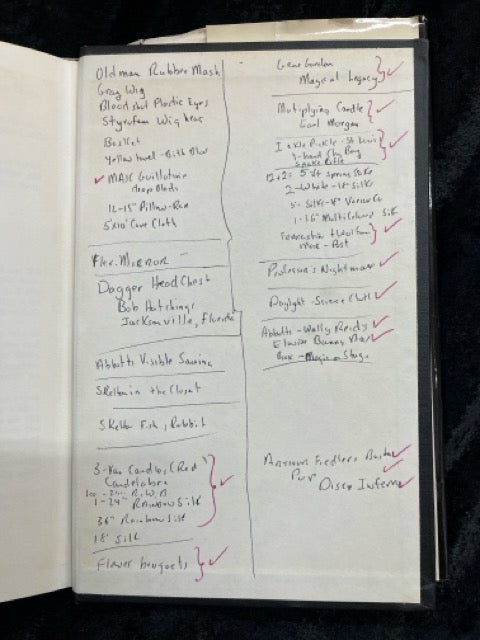 Oldman Rubber Mask
Gray Wig
Bloodshot Plastic Eyes
Styrofoam Wig head
Basket
Yellow towel - Bith Blood
MAK Guillotine
12-15" Pillow - Red
5'x10' Cover Cloth
Flex. Mirror
Dagger Head Chest
Bob Hutchings
Jacksonville, Florida
Abbotts Visible Sawing
Skeleton in the Closet
Skeleton Fish, Rabbit
3- Candles (Red)
Candelabra
R.W.B.
1-24" Rainbow Silk
36" Rainbow Silk
18" Silk
Flower bouquets
Gene Gordon
Magical Legacy
Multiplying Candle
Earl Morgan
Ickle Pickle - St Louis
Bag
Snake Rifle
12+2: 5 ft Spring Snake
2- White - 18" Silk
5- Silks - 18"
1-36" Multicolored Silk
Professor's Nightmare
Daylight - Science
Abbotts - Wally Reidy
Bunny
Box - Magic - Stage
Fiedlers Boston
Pops
Disco Inferno